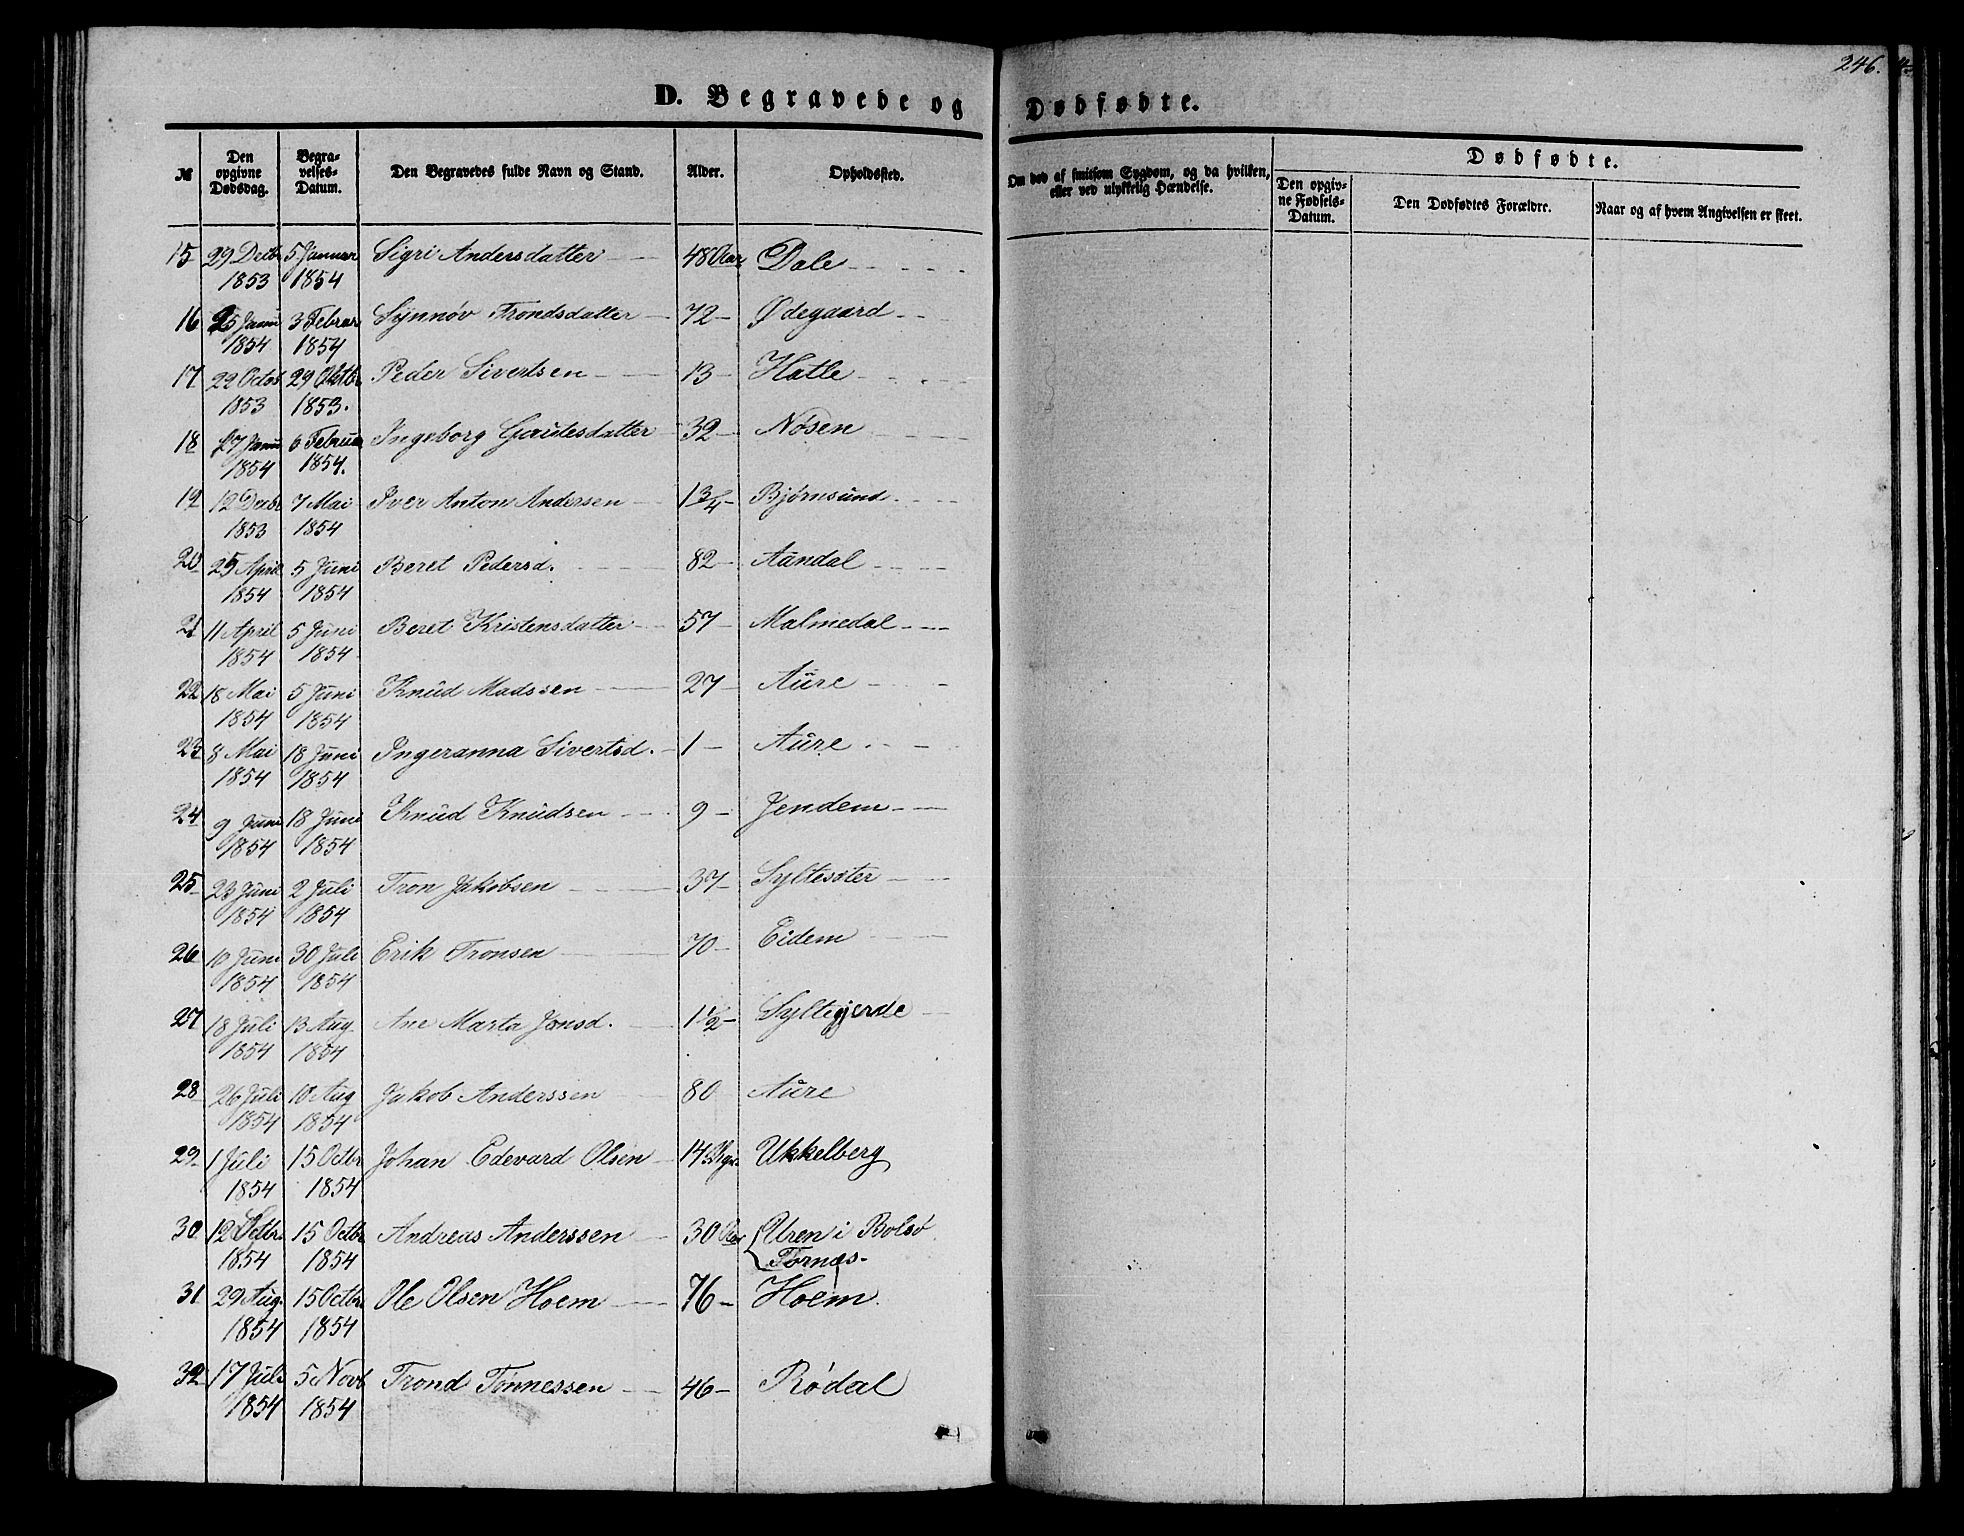 246.
D. Begravede og Dødfødte.
№
Den opgivne Dødsdag.
Begravelses-Datum.
Den Begravedes fulde Navn og Stand.
Alder.
Opholdssted.
Om død af smitsom Sygdom, og da hvilken, eller ved ulykkelig Hændelse.
Dødfødte.
Den opgivne Fødsels-Datum.
Den Dødfødtes Forældre.
Naar og af hvem Angivelsen er skeet.
15 29 Decbr 5 Januar Sigri Andersdatter 48 Aar Dale
1853 1854
16 25 Janu 3 Februar Synnøv Trondsdatter 72 Ødegaard
1854 1854
17 22 Octob 29 Oktbr Peder Sivertsen 13 Hatle
1853 1853.
18 17 Janu 6 Februar Ingeborg Gautesdatter 32 Nøsen
1854 1854.
19 12 Decbr 7 Mai Iver Anton Andersen 1 3/4 Bjørnsund
1853 1854
20 25 April 5 Juni Beret Pedersd. 82 Aandal
1854 1854
21 11 April 5 Juni Beret Kristensdatter 57 Malmedal
1854 1854
22 18 Mai 5 Juni Knud Madssen 27 Aure
1854 1854
23 8 Mai 18 Juni Ingeranna Sivertsd. 1 Aure
1854 1854
24 9 Juni 18 Juni Knud Knudsen 9 Jendem
1854 1854
25 23 Juni 2 Juli Tron Jakobsen 37 Syltesøter
1854 1854
26 10 Juni 30 Juli Erik Tronsen 70 Eidem
1854 1854
27 18 Juli 13 Aug Ane Marta Jonsd. 1 1/2 Syltegjerde
1854 1854
28 26 Juli 10 Aug Jakob Anderssen 80 Aure
1854 1854
29 1 Juli 15 Octbr Johan Edevard Olsen 14 Ukkelberg
1854 1854
30 12 15 Octbr Andreas Anderssen 30 Aar Uren i Bolsø
1854 1854 Tornæs
31 29 Aug. 15 Octbr Ole Olsen Hoem 76 Hoem.
1854 1854
32 17 Juli 5 Novb Trond Tønnessen 46 Rødal
1854 1854